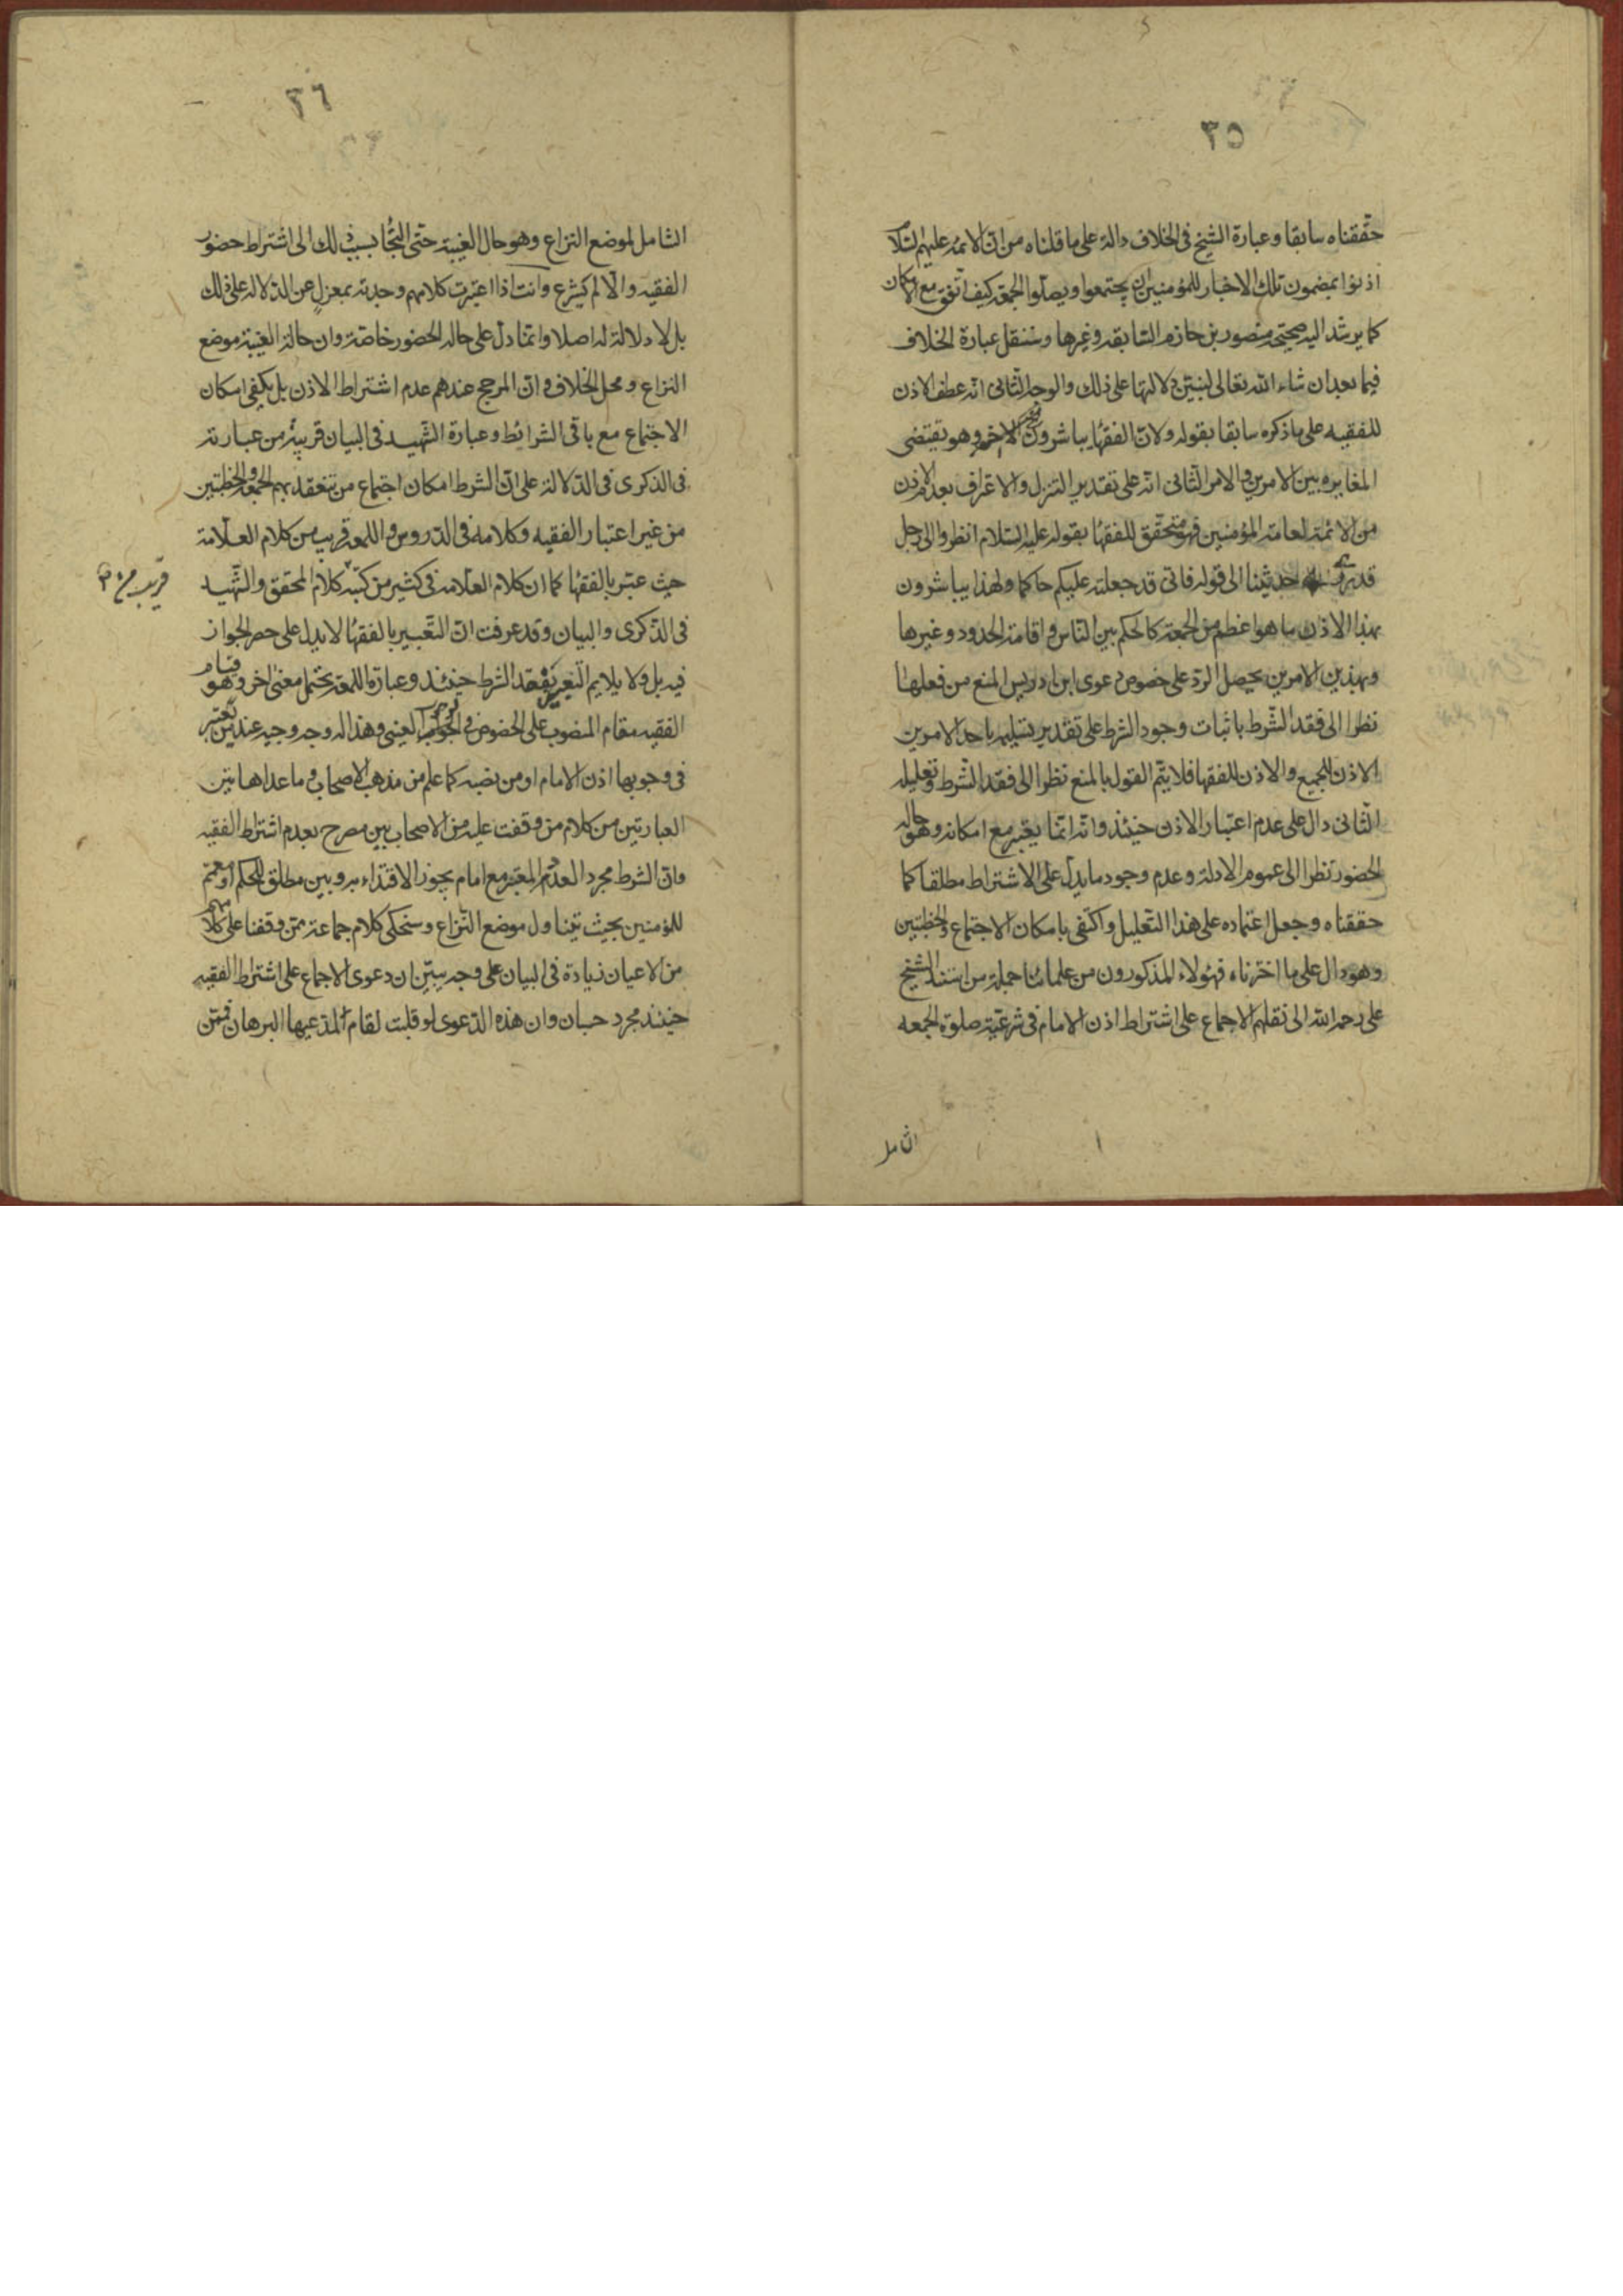 ٣٥
حققناه سابقا وعبارة الشيخ فى الخلاف دالة على ما قلناه من ان الائمه عليهم السلام
اذنوا بمضمون تلك الاخبار للمؤمنين ان يجتمعوا ويصلّوا الجمعة كيف اتفق مع الامكان
كما يرشد اليه صحيحة منصور بن حازم السابقه وغيرها وسننقل عبارة الخلاف
فيما بعد ان شاء الله تعالى لنبيّن دلالتها على ذلك والوجه الثانى انه عطف الاذن
للفقيه على ما ذكره سابقا بقوله ولان الفقهاء يباشرون الاخر وهو يقتضى
المغايره بين الامرين والامر الثانى انه على تقدير التنزل والاعتراف بعدم الاذن
من الائمة لعامة المؤمنين فهو متحقق للفقهاء بقوله عليه السلام انظروا الى رجل
قد روى حديثنا الى قوله فانى قد جعلته عليكم حاكما ولهذا يباشرون
بهذا الاذن ما هو اعظم من الجمعة كالحكم بين الناس واقامة الحدود وغيرها
وبهذين الامرين يحصل الردّ على خصوص دعوى ابن ادريس المنع من فعلها
نظرا الى فقد الشرط باثبات وجود الشرط على تقدير تسليمه باحد الامرين
الاذن للجميع والاذن للفقها فلا يتم القول بالمنع نظرا الى فقد الشرط وتعليله
الثانى دال على عدم اعتبار الاذن حينئذ وانه انما يعتبر مع امكانه وهو حاله
الحضور نظرا الى عموم الادلة وعدم وجود ما يدل على الاشتراط مطلقا كما
حققناه وجعل اعتماده على هذا التعليل واكتفى بامكان الاجتماع والخطبتين
وهو دال على ما اخترناه فهؤلاء المذكورون من علمائنا جملة من استند الشيخ
على رحمه الله الى نقلهم الاجماع على اشتراط اذن الامام فى شرعيّة صلوة الجمعه
الشامل
٣٦
الشامل لموضع النزاع وهو حال الغيبة حتى التجأ بسبب ذلك الى اشتراط حضور
الفقيه والا لم يشرع وانت اذا اعتبرت كلامهم وجدته بمعزلٍ عن الدلاله على ذلك
بل لا دلالة له اصلا وانما دل على حاله الحضور خاصة وان حالة الغيبة موضع
النزاع ومحل الخلاف وان المرجح عندهم عدم اشتراط الاذن بل يكفى امكان
الاجتماع مع باقى الشرائط وعبارة الشهيد فى البيان قريبة من عبارته
فى الذكرى فى الدلالة على ان الشرط امكان اجتماع من تنعقد بهم الجمعة والخطبتين
من غير اعتبار الفقيه وكلامه فى الدروس واللمعه قريب من كلام العلامة
حيث عبّر بالفقهاء كما ان كلام العلامه فى كثير من كتبه كلام المحقق والشهيد
قريب من
فى الذكرى والبيان وقد عرفت ان التعبير بالفقهاء لا يدل على حصر الجواز
فيه بل ولا يلايم التعريض بفقد الشرط حينئذ وعبارة اللمعة يحتمل معنى اخر وهو قيام
الفقيه مقام المنصوب على الخصوص فى الوجوب العينى وهذا له وجه وجيه عند من يعتبر
فى وجوبها اذن الامام او من نصبه كما علم من مذهب الاصحاب وما عدا هاتين
العبارتين من كلام من وقفت عليه من الاصحاب بين مصرح بعدم اشتراط الفقيه
وان الشرط مجرد العدد المعتبر مع امام يجوز الاقتداء به وبين مطلق للحكم او معمم
للمؤمنين بحيث يتناول موضع النزاع وسنحكى كلام جماعة ممن وقفنا على كلامهم
من الاعيان زيادة فى البيان على وجه يبيّن ان دعوى الاجماع على اشتراط الفقيه
حينئذ مجرد حسبان وان هذه الدعوى لو قلبت لقام لمدعيها البرهان فممّن